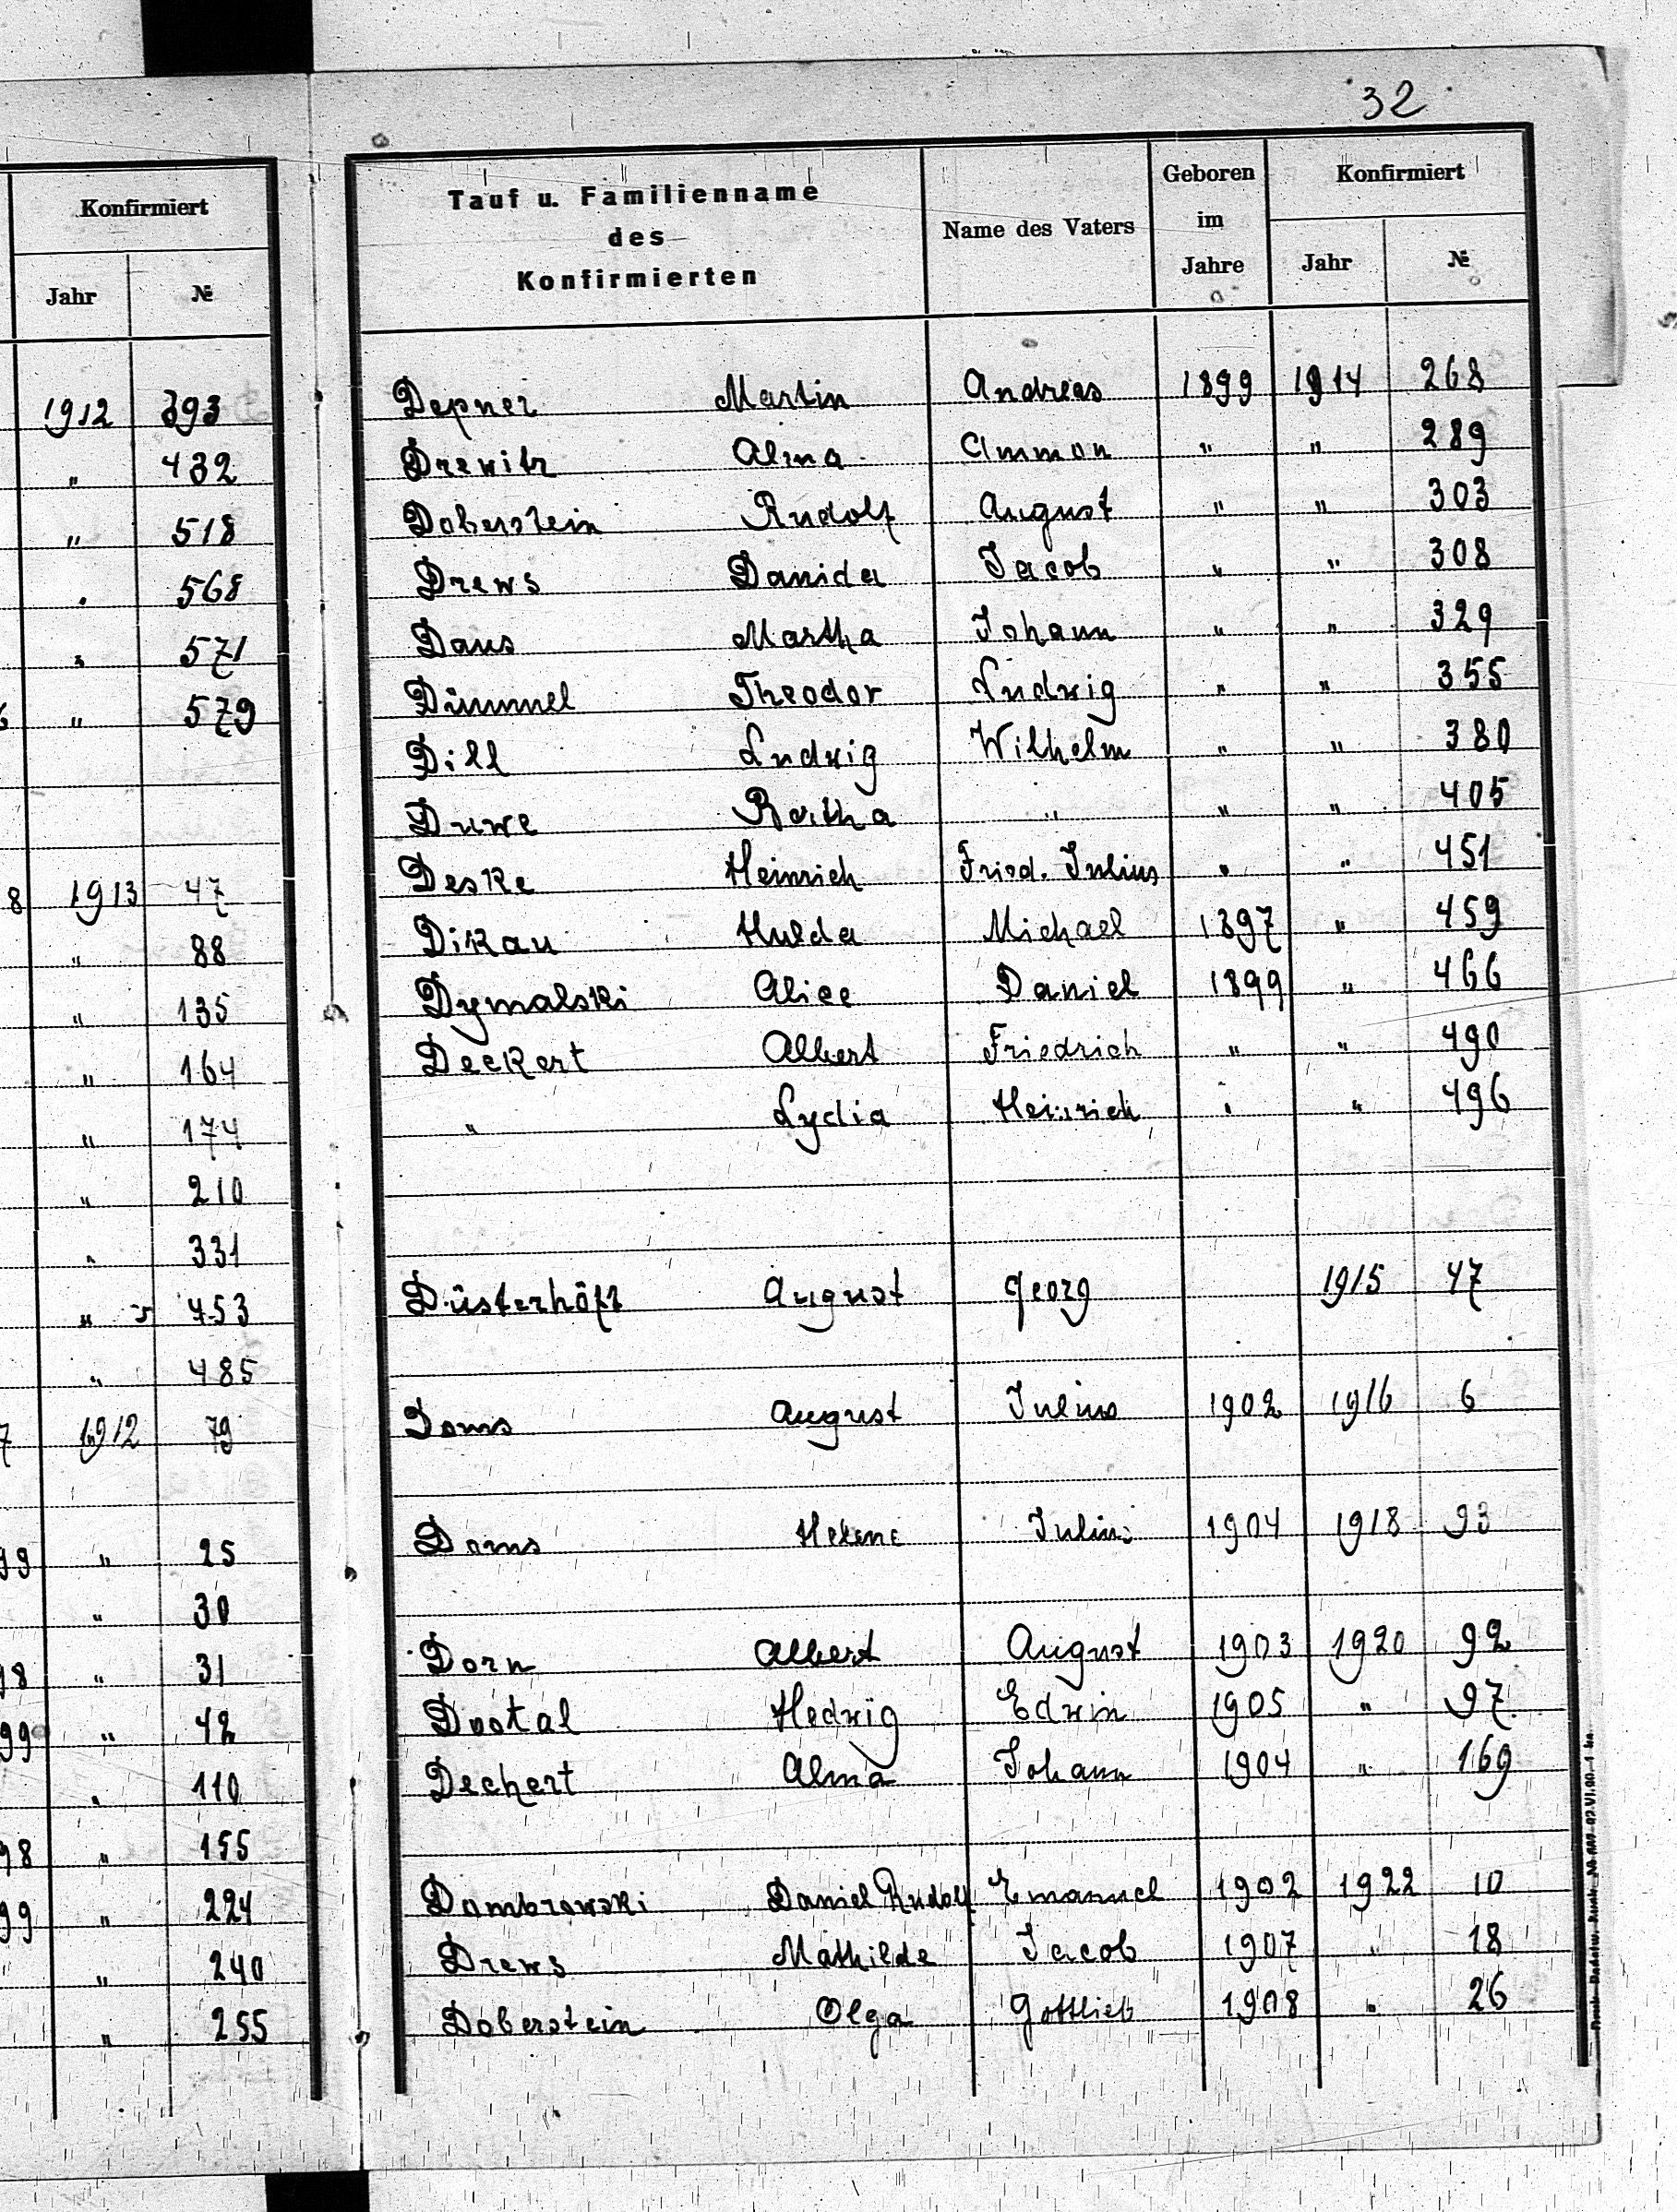 32
Konfirmiert
Jahr №
1912 393
" 432
" 518
" 568
" 571
6 " 579
8 1913 47
" 88
" 135
" 164
" 174
" 210
" 331
" 453
" 485
7 1912 79
99 " 25
" 30
98 " 31
99 " 42
" 110
98 " 155
99 " 224
" 240
" 255
Tauf u. Familienname des Konfirmierten Name des Vaters Geboren im Jahre Konfirmiert
Jahr №
Depner Martin Andreas 1899 1914 268
Drewitz Alma Ammon " " 289
Doberstein Rudolf August " " 303
Drews Danida Jacob " " 308
Daus Martha Johann " " 329
Dümmel Theodor Ludwig " " 355
Dill Ludwig Wilhelm " " 380
Druwe " " " 405
Deske Heinrich Fried. Julius " " 451
Dikau Hulda Michael 1897 " 459
Dymalski Alice Daniel 1899 " 466
Deckert Albert Friedrich " " 490
" Lydia Heinrich " " 496
Düsterhöft August Georg 1915 47
Doms August Julius 1902 1916 6
Doms Helene Julius 1904 1918 93
Dorn Albert August 1903 1920 92
Dostal Hedwig Edwin 1905 " 97
Dechert Alma Johann 1904 " 169
Dombrowski Daniel Rudolf Emanuel 1902 1922 10
Drews Mathilde Jacob 1907 " 18
Doberstein Olga Gottlieb 1908 " 26